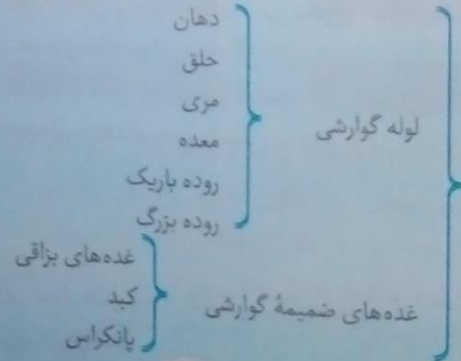 لوله گوارشی
دهان
حلق
مری
معده
روده باریک
روده بزرگ
غده‌های ضمیمهٔ گوارشی
غده‌های بزاقی
کبد
پانکراس